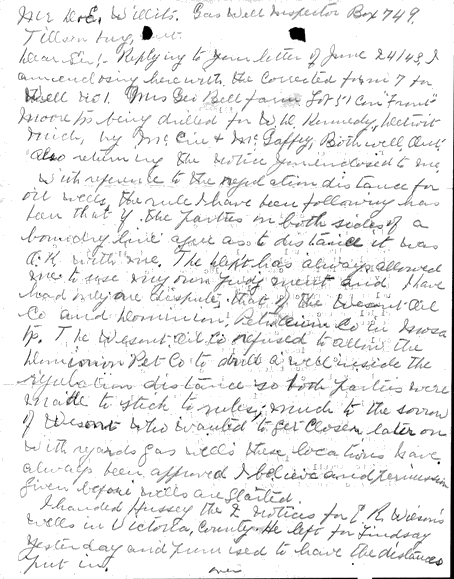 Mr D.E. Willits. Gas Well Inspector Box 749,
Tillsonburg, Ont.
Dear Sir:- Replying to your letter of June 24/43, I
am enclosing herewith the corrected form 7 for
Well No 1. Mrs Geo Bell farm Lot 51 Con "Front"
Moore Tp being drilled for W.H. Kennedy, Detroit
Mich, by McCue & McGaffey, Bothwell, Ont.
Also returning the notice you enclosed to me.
With reference to the regulation distance for
oil wells, the rule I have been following has
been that if the parties on both sides of a
boundry line agree as to distance it was
O.K with me. The Dept has always allowed
me to use my own judgment and I have
had only one dispute, that of the Wesont Oil
Co and Dominion Petroleum Co in Mosa
Tp. The Wesont Oil Co refused to allow the
Dominion Pet Co to drill a well inside the
regulation distance so both parties were
made to stick to rules, much to the sorrow
of Wesont who wanted to get closer later on
With regards gas wells these locations have
always been approved I believe and permission
given before wells are started.
I handed Hussey the 2 notices for E. R. Wilson's
wells in Victoria, County. He left for Lindsay
yesterday and promised to have the distances
put in.
over